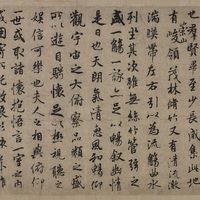 也羣賢畢至少長咸集此地
有崇山峻領茂林脩竹又有清流激
湍暎帶左右引以為流觴曲水
列坐其次雖無絲竹管弦之
盛一觴一詠亦足以暢叙幽情
是日也天朗氣清惠風和暢仰
觀宇宙之大俯察品類之盛
所以遊目騁懷足以極視聽之
娛信可樂也夫人之相與俯仰
一世或取諸懷抱悟言一室之内